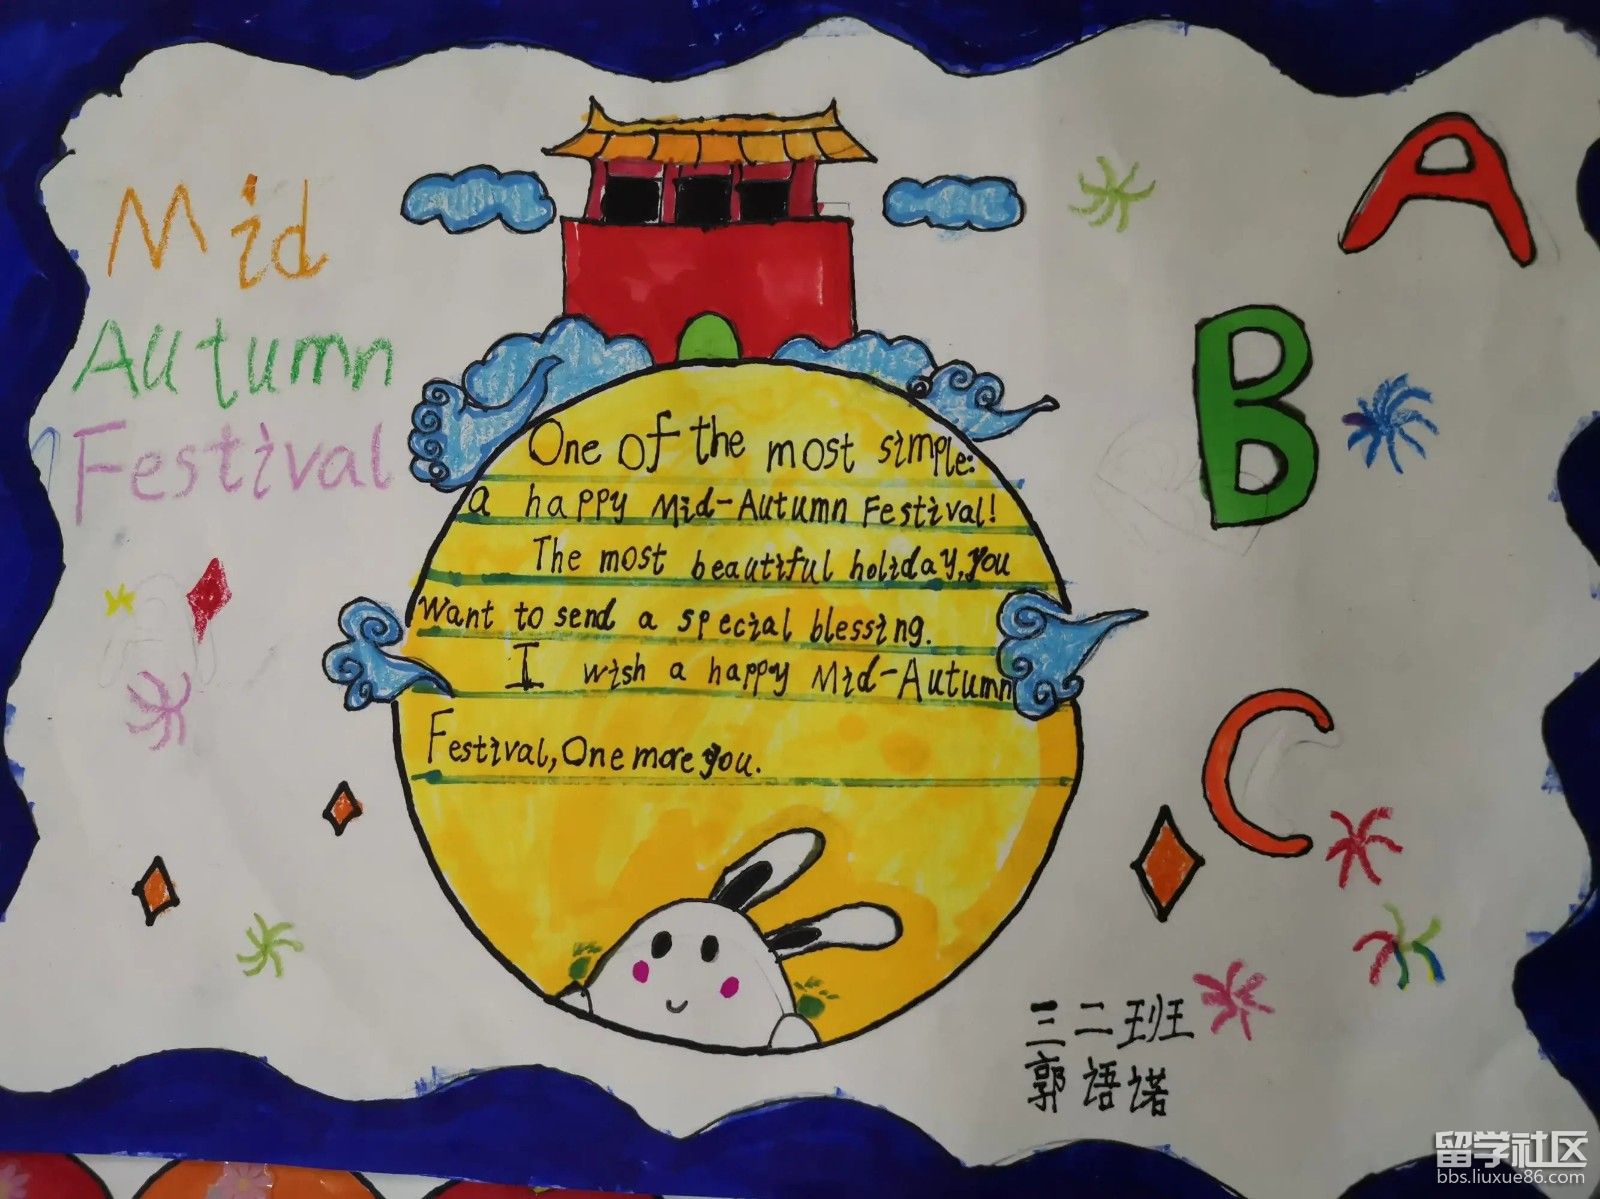 Mid
Autumn
Festival
One of the most simple:
a happy Mid-Autumn Festival!
The most beautiful holiday, you
want to send a special blessing.
I wish a happy Mid-Autumn
Festival, One more you.
A
B
C
三二班
郭语诺
留学社区
bbs.liuxue86.com